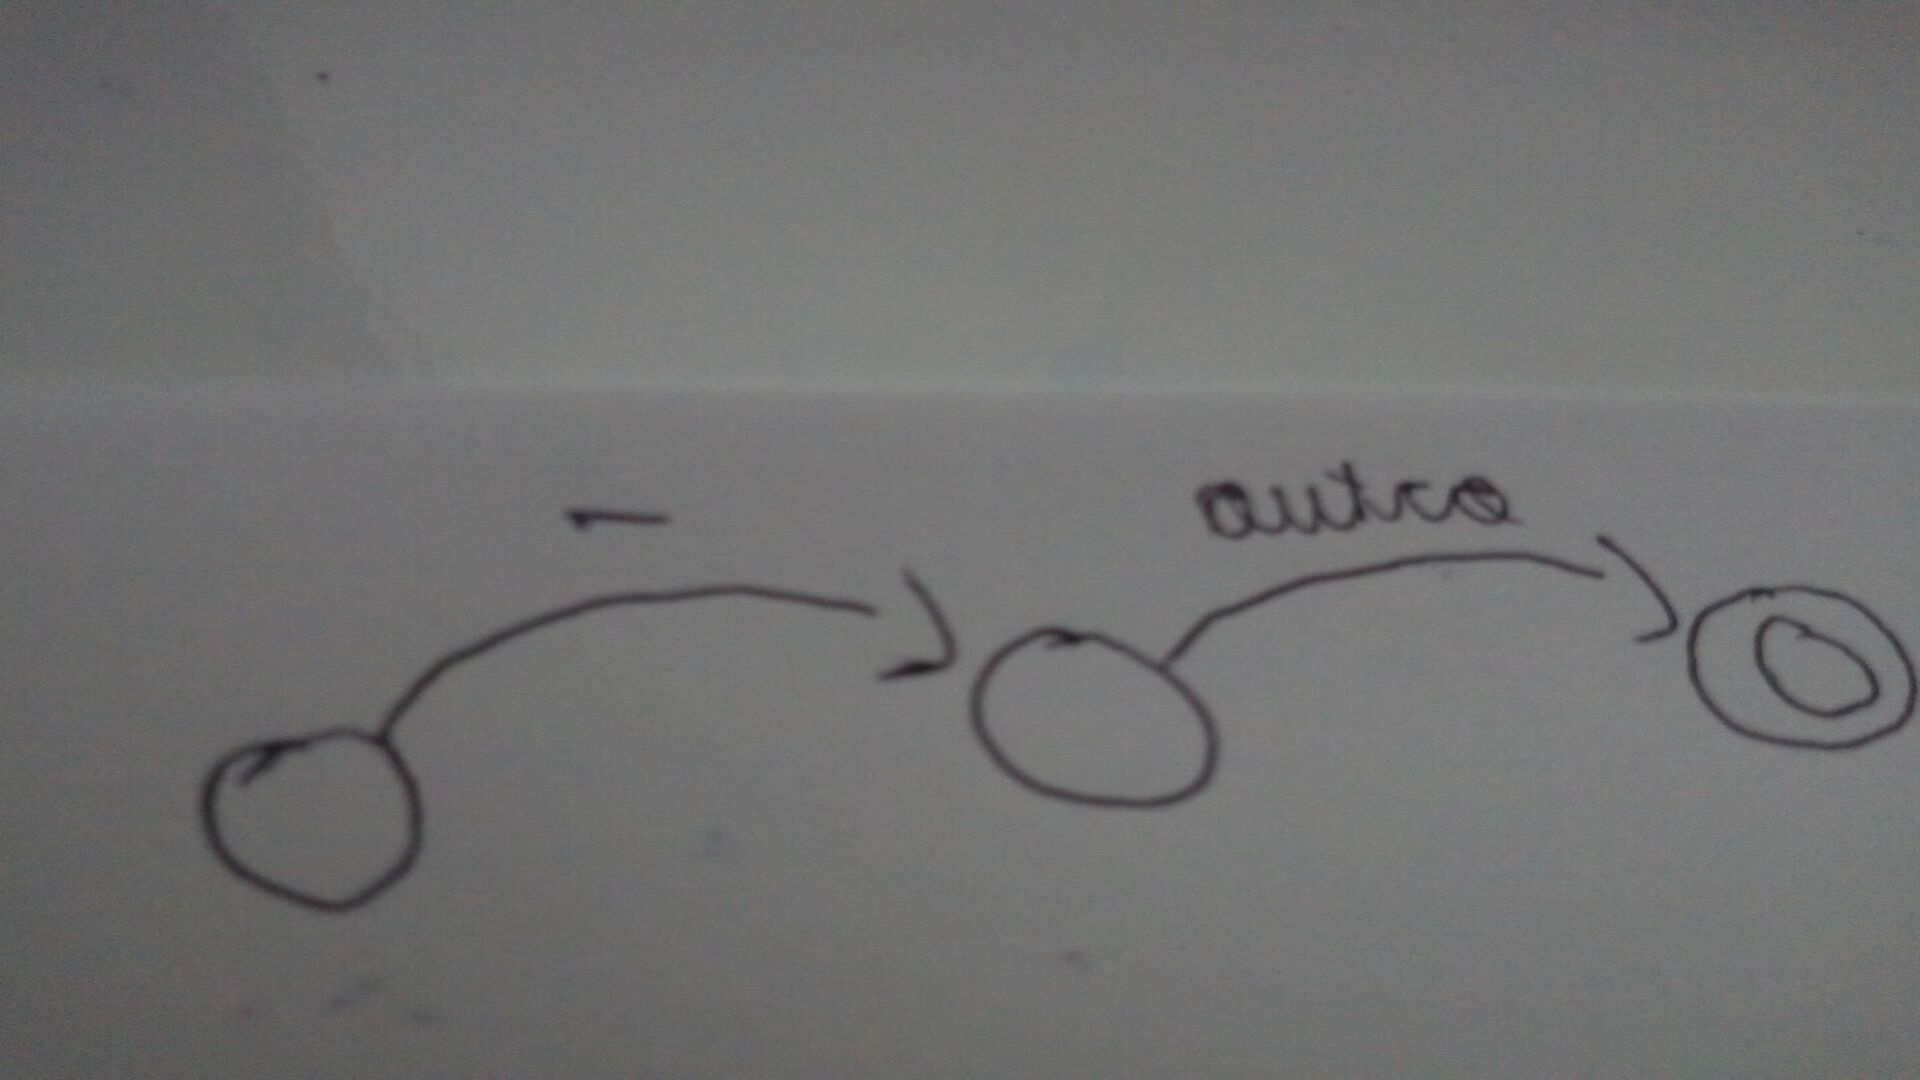 -
outro